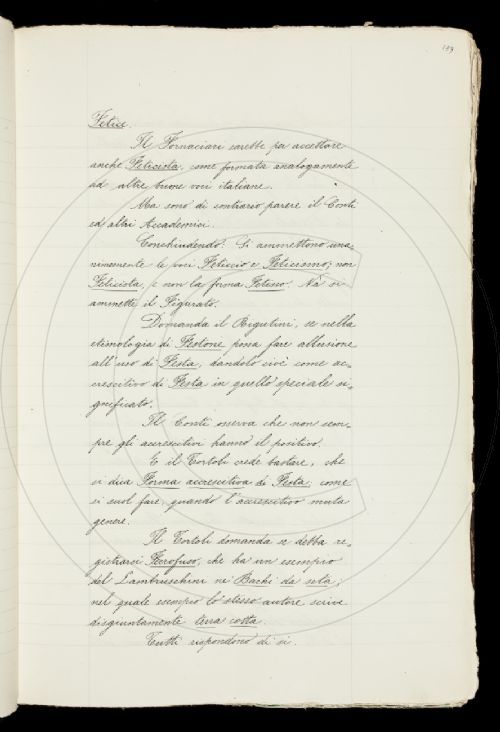 139
Fetice.
Il Fornaciari sarebbe per accettare
anche Feticista, come formata analogamente
ad altre buone voci italiane.
Ma sono di contrario parere il Conti
ed altri Accademici.
Conchiudendo: Si ammettono una-
nimemente le voci Feticcio e Feticismo; non
Feticista, e non la forma Fetisso. Nè si
ammette il Figurato.
Domanda il Rigutini, se nella
etimologia di Festone possa fare allusione
all'uso di Festa, dandolo cioè come ac-
crescitivo di Festa in quello speciale si-
gnificato.
Il Conti osserva che non sem-
pre gli accrescitivi hanno il positivo.
E il Tortoli crede bastare, che
si dica Forma accrescitiva di Festa, come
si suol fare quando l'accrescitivo muta
genere.
Il Tortoli domanda se debba re-
gistrarsi che ha un esempio
del Lambruschini ne' Bachi da seta;
nel quale esempio lo stesso autore scrive
disgiuntamente terra cotta.
Tutti rispondono di sì.